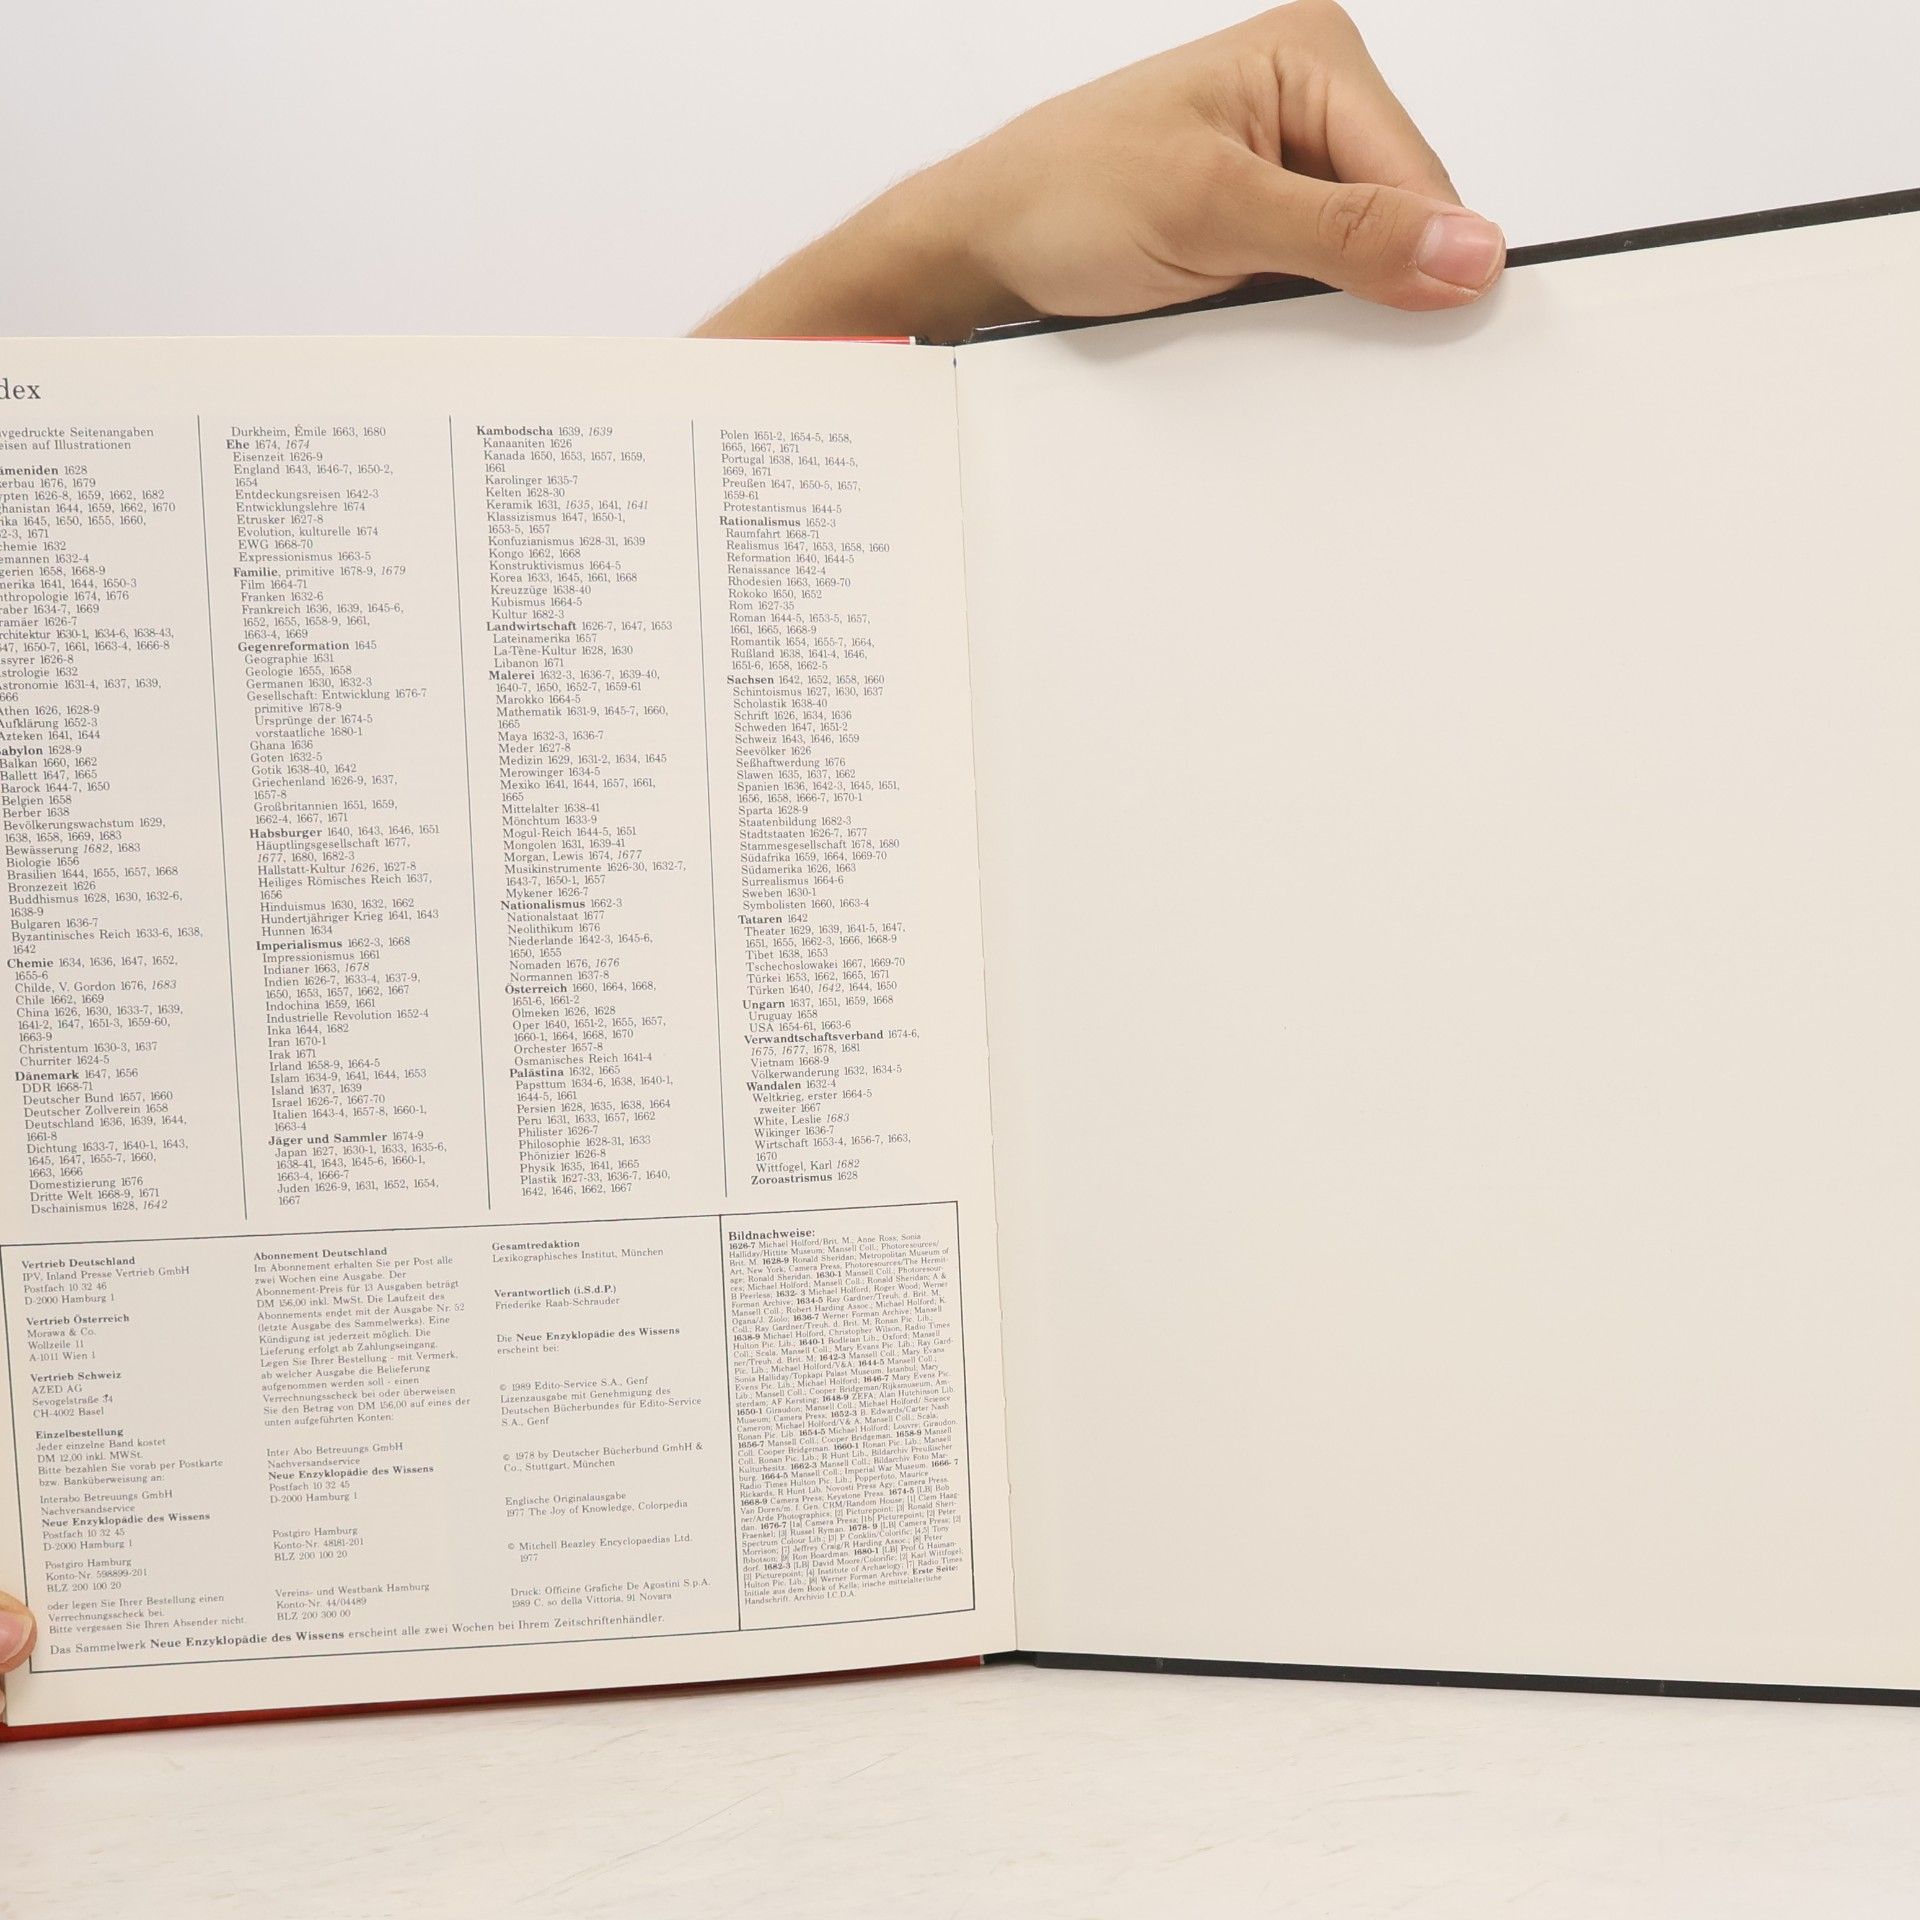 dex
vgedruckte Seitenangaben
eisen auf Illustrationen
ämeniden 1628
kerbau 1676, 1679
ypten 1626-8, 1659, 1662, 1682
ghanistan 1644, 1659, 1662, 1670
rika 1645, 1650, 1655, 1660,
62-3, 1671
chemie 1632
emannen 1632-4
gerien 1658, 1668-9
merika 1641, 1644, 1650-3
nthropologie 1674, 1676
raber 1634-7, 1669
ramäer 1626-7
rchitektur 1630-1, 1634-6, 1638-43,
647, 1650-7, 1661, 1663-4, 1666-8
ssyrer 1626-8
strologie 1632
Astronomie 1631-4, 1637, 1639,
666
Athen 1626, 1628-9
Aufklärung 1652-3
Azteken 1641, 1644
abylon 1628-9
Balkan 1660, 1662
Ballett 1647, 1665
Barock 1644-7, 1650
Belgien 1658
Berber 1638
Bevölkerungswachstum 1629,
1638, 1658, 1669, 1683
Bewässerung 1682, 1683
Biologie 1656
Brasilien 1644, 1655, 1657, 1668
Bronzezeit 1626
Buddhismus 1628, 1630, 1632-6,
1638-9
Bulgaren 1636-7
Byzantinisches Reich 1633-6, 1638,
1642
Chemie 1634, 1636, 1647, 1652,
1655-6
Childe, V. Gordon 1676, 1683
Chile 1662, 1669
China 1626, 1630, 1633-7, 1639,
1641-2, 1647, 1651-3, 1659-60,
1663-9
Christentum 1630-3, 1637
Churriter 1624-5
Dänemark 1647, 1656
DDR 1668-71
Deutscher Bund 1657, 1660
Deutscher Zollverein 1658
Deutschland 1636, 1639, 1644,
1661-8
Dichtung 1633-7, 1640-1, 1643,
1645, 1647, 1655-7, 1660,
1663, 1666
Domestizierung 1676
Dritte Welt 1668-9, 1671
Dschainismus 1628, 1642
Durkheim, Émile 1663, 1680
Ehe 1674, 1674
Eisenzeit 1626-9
England 1643, 1646-7, 1650-2,
1654
Entdeckungsreisen 1642-3
Entwicklungslehre 1674
Etrusker 1627-8
Evolution, kulturelle 1674
EWG 1668-70
Expressionismus 1663-5
Familie, primitive 1678-9, 1679
Film 1664-71
Franken 1632-6
Frankreich 1636, 1639, 1645-6,
1652, 1655, 1658-9, 1661,
1663-4, 1669
Gegenreformation 1645
Geographie 1631
Geologie 1655, 1658
Germanen 1630, 1632-3
Gesellschaft: Entwicklung 1676-7
primitive 1678-9
Ursprünge der 1674-5
vorstaatliche 1680-1
Ghana 1636
Goten 1632-5
Gotik 1638-40, 1642
Griechenland 1626-9, 1637,
1657-8
Großbritannien 1651, 1659,
1662-4, 1667, 1671
Habsburger 1640, 1643, 1646, 1651
Häuptlingsgesellschaft 1677,
1677, 1680, 1682-3
Hallstatt-Kultur 1626, 1627-8
Heiliges Römisches Reich 1637,
1656
Hinduismus 1630, 1632, 1662
Hundertjähriger Krieg 1641, 1643
Hunnen 1634
Imperialismus 1662-3, 1668
Impressionismus 1661
Indianer 1663, 1678
Indien 1626-7, 1633-4, 1637-9,
1650, 1653, 1657, 1662, 1667
Indochina 1659, 1661
Industrielle Revolution 1652-4
Inka 1644, 1682
Iran 1670-1
Irak 1671
Irland 1658-9, 1664-5
Islam 1634-9, 1641, 1644, 1653
Island 1637, 1639
Israel 1626-7, 1667-70
Italien 1643-4, 1657-8, 1660-1,
1663-4
Jäger und Sammler 1674-9
Japan 1627, 1630-1, 1633, 1635-6,
1638-41, 1643, 1645-6, 1660-1,
1663-4, 1666-7
Juden 1626-9, 1631, 1652, 1654,
1667
Kambodscha 1639, 1639
Kanaaniten 1626
Kanada 1650, 1653, 1657, 1659,
1661
Karolinger 1635-7
Kelten 1628-30
Keramik 1631, 1635, 1641, 1641
Klassizismus 1647, 1650-1,
1653-5, 1657
Konfuzianismus 1628-31, 1639
Kongo 1662, 1668
Konstruktivismus 1664-5
Korea 1633, 1645, 1661, 1668
Kreuzzüge 1638-40
Kubismus 1664-5
Kultur 1682-3
Landwirtschaft 1626-7, 1647, 1653
Lateinamerika 1657
La-Tène-Kultur 1628, 1630
Libanon 1671
Malerei 1632-3, 1636-7, 1639-40,
1640-7, 1650, 1652-7, 1659-61
Marokko 1664-5
Mathematik 1631-9, 1645-7, 1660,
1665
Maya 1632-3, 1636-7
Meder 1627-8
Medizin 1629, 1631-2, 1634, 1645
Merowinger 1634-5
Mexiko 1641, 1644, 1657, 1661,
1665
Mittelalter 1638-41
Mönchtum 1633-9
Mogul-Reich 1644-5, 1651
Mongolen 1631, 1639-41
Morgan, Lewis 1674, 1677
Musikinstrumente 1626-30, 1632-7,
1643-7, 1650-1, 1657
Mykener 1626-7
Nationalismus 1662-3
Nationalstaat 1677
Neolithikum 1676
Niederlande 1642-3, 1645-6,
1650, 1655
Nomaden 1676, 1676
Normannen 1637-8
Österreich 1660, 1664, 1668,
1651-6, 1661-2
Olmeken 1626, 1628
Oper 1640, 1651-2, 1655, 1657,
1660-1, 1664, 1668, 1670
Orchester 1657-8
Osmanisches Reich 1641-4
Palästina 1632, 1665
Papsttum 1634-6, 1638, 1640-1,
1644-5, 1661
Persien 1628, 1635, 1638, 1664
Peru 1631, 1633, 1657, 1662
Philister 1626-7
Philosophie 1628-31, 1633
Phönizier 1626-8
Physik 1635, 1641, 1665
Plastik 1627-33, 1636-7, 1640,
1642, 1646, 1662, 1667
Polen 1651-2, 1654-5, 1658,
1665, 1667, 1671
Portugal 1638, 1641, 1644-5,
1669, 1671
Preußen 1647, 1650-5, 1657,
1659-61
Protestantismus 1644-5
Rationalismus 1652-3
Raumfahrt 1668-71
Realismus 1647, 1653, 1658, 1660
Reformation 1640, 1644-5
Renaissance 1642-4
Rhodesien 1663, 1669-70
Rokoko 1650, 1652
Rom 1627-35
Roman 1644-5, 1653-5, 1657,
1661, 1665, 1668-9
Romantik 1654, 1655-7, 1664,
Rußland 1638, 1641-4, 1646,
1651-6, 1658, 1662-5
Sachsen 1642, 1652, 1658, 1660
Schintoismus 1627, 1630, 1637
Scholastik 1638-40
Schrift 1626, 1634, 1636
Schweden 1647, 1651-2
Schweiz 1643, 1646, 1659
Seevölker 1626
Seßhaftwerdung 1676
Slawen 1635, 1637, 1662
Spanien 1636, 1642-3, 1645, 1651,
1656, 1658, 1666-7, 1670-1
Sparta 1628-9
Staatenbildung 1682-3
Stadtstaaten 1626-7, 1677
Stammesgesellschaft 1678, 1680
Südafrika 1659, 1664, 1669-70
Südamerika 1626, 1663
Surrealismus 1664-6
Sweben 1630-1
Symbolisten 1660, 1663-4
Tataren 1642
Theater 1629, 1639, 1641-5, 1647,
1651, 1655, 1662-3, 1666, 1668-9
Tibet 1638, 1653
Tschechoslowakei 1667, 1669-70
Türkei 1653, 1662, 1665, 1671
Türken 1640, 1642, 1644, 1650
Ungarn 1637, 1651, 1659, 1668
Uruguay 1658
USA 1654-61, 1663-6
Verwandtschaftsverband 1674-6,
1675, 1677, 1678, 1681
Vietnam 1668-9
Völkerwanderung 1632, 1634-5
Wandalen 1632-4
Weltkrieg, erster 1664-5
zweiter 1667
White, Leslie 1683
Wikinger 1636-7
Wirtschaft 1653-4, 1656-7, 1663,
1670
Wittfogel, Karl 1682
Zoroastrismus 1628
Vertrieb Deutschland
IPV, Inland Presse Vertrieb GmbH
Postfach 10 32 46
D-2000 Hamburg 1
Vertrieb Österreich
Morawa & Co.
Wollzeile 11
A-1011 Wien 1
Vertrieb Schweiz
AZED AG
Sevogelstraße 34
CH-4002 Basel
Einzelbestellung
Jeder einzelne Band kostet
DM 12,00 inkl. MWSt.
Bitte bezahlen Sie vorab per Postkarte
bzw. Banküberweisung an:
Interabo Betreuungs GmbH
Nachversandservice
Neue Enzyklopädie des Wissens
Postfach 10 32 45
D-2000 Hamburg 1
Postgiro Hamburg
Konto-Nr. 598899-201
BLZ 200 100 20
oder legen Sie Ihrer Bestellung einen
Verrechnungsscheck bei.
Bitte vergessen Sie Ihren Absender nicht.
Abonnement Deutschland
Im Abonnement erhalten Sie per Post alle
zwei Wochen eine Ausgabe. Der
Abonnement-Preis für 13 Ausgaben beträgt
DM 156,00 inkl. MwSt. Die Laufzeit des
Abonnements endet mit der Ausgabe Nr. 52
(letzte Ausgabe des Sammelwerks). Eine
Kündigung ist jederzeit möglich. Die
Lieferung erfolgt ab Zahlungseingang.
Legen Sie Ihrer Bestellung - mit Vermerk,
ab welcher Ausgabe die Belieferung
aufgenommen werden soll - einen
Verrechnungsscheck bei oder überweisen
Sie den Betrag von DM 156,00 auf eines der
unten aufgeführten Konten:
Inter Abo Betreuungs GmbH
Nachversandservice
Neue Enzyklopädie des Wissens
Postfach 10 32 45
D-2000 Hamburg 1
Postgiro Hamburg
Konto-Nr. 48181-201
BLZ 200 100 20
Vereins- und Westbank Hamburg
Konto-Nr. 44/04489
BLZ 200 300 00
Gesamtredaktion
Lexikographisches Institut, München
Verantwortlich (i.S.d.P.)
Friederike Raab-Schrauder
Die Neue Enzyklopädie des Wissens
erscheint bei:
© 1989 Edito-Service S.A., Genf
Lizenzausgabe mit Genehmigung des
Deutschen Bücherbundes für Edito-Service
S.A., Genf
© 1978 by Deutscher Bücherbund GmbH &
Co., Stuttgart, München
Englische Originalausgabe
1977 The Joy of Knowledge, Colorpedia
© Mitchell Beazley Encyclopaedias Ltd.
1977
Druck: Officine Grafiche De Agostini S.p.A.
1989 C. so della Vittoria, 91 Novara
Das Sammelwerk Neue Enzyklopädie des Wissens erscheint alle zwei Wochen bei Ihrem Zeitschriftenhändler.
Bildnachweise:
1626-7 Michael Holford/Brit. M.; Anne Ross; Sonia
Halliday/Hittite Museum; Mansell Coll.; Photoresources/
Brit. M. 1628-9 Ronald Sheridan; Metropolitan Museum of
Art, New York; Camera Press, Photoresources/The Hermit-
age; Ronald Sheridan. 1630-1 Mansell Coll.; Photoresour-
ces; Michael Holford; Mansell Coll.; Ronald Sheridan; A &
B Peerless; 1632-3 Michael Holford; Roger Wood; Werner
Forman Archive; 1634-5 Ray Gardner/Treuh. d. Brit. M.
Mansell Coll.; Robert Harding Assoc.; Michael Holford; K.
Ogana/J. Ziolo; 1636-7 Werner Forman Archive; Mansell
Coll.; Ray Gardner/Treuh. d. Brit. M; Ronan Pic. Lib.;
1638-9 Michael Holford, Christopher Wilson, Radio Times
Hulton Pic. Lib.; 1640-1 Bodleian Lib., Oxford; Mansell
Coll.; Scala, Mansell Coll.; Mary Evans Pic. Lib.; Ray Gard-
ner/Treuh. d. Brit. M; 1642-3 Mansell Coll.; Mary Evans
Pic. Lib.; Michael Holford/V&A; 1644-5 Mansell Coll.;
Sonia Halliday/Topkapi Palast Museum, Istanbul; Mary
Evens Pic. Lib.; Michael Holford; 1646-7 Mary Evens Pic.
Lib.; Mansell Coll.; Cooper Bridgeman/Rijksmuseum, Am-
sterdam; AF Kersting; 1648-9 ZEFA; Alan Hutchinson Lib.
1650-1 Giraudon; Mansell Coll.; Michael Holford/ Science
Museum; Camera Press; 1652-3 B. Edwards/Carter Nash
Cameron; Michael Holford/V& A, Mansell Coll.; Scala;
Ronan Pic. Lib. 1654-5 Michael Holford; Louvre; Giraudon.
1656-7 Mansell Coll.; Cooper Bridgeman. 1658-9 Mansell
Coll. Cooper Bridgeman. 1660-1 Ronan Pic. Lib.; Mansell
Coll. Ronan Pic. Lib.; R Hunt Lib., Bildarchiv Preußischer
Kulturbesitz. 1662-3 Mansell Coll.; Bildarchiv Foto Mar-
burg. 1664-5 Mansell Coll.; Imperial War Museum. 1666-7
Radio Times Hulton Pic. Lib.; Popperfoto, Maurice
Rickards, R Hunt Lib. Novosti Press Agy; Camera Press.
1668-9 Camera Press; Keystone Press. 1674-5 [LB] Bob
Van Doren/m. f. Gen. CRM/Random House; [1] Clem Haag-
ner/Arde Photographics; [2] Picturepoint; [3] Ronald Sheri-
dan. 1676-7 [1a] Camera Press; [1b] Picturepoint; [2] Peter
Fraenkel; [3] Russel Ryman. 1678-9 [LB] Camera Press; [2]
Spectrum Colour Lib.; [3] P Conklin/Colorific; [4,5] Tony
Morrison; [7] Jeffrey Craig/R Harding Assoc.; [8] Peter
Ibbotson; [9] Ron Boardman. 1680-1 [LB] Prof G Haiman-
dorf. 1682-3 [LB] David Moore/Colorific; [2] Karl Wittfogel;
[3] Picturepoint; [4] Institute of Archaelogy; [7] Radio Times
Hulton Pic. Lib.; [8] Werner Forman Archive. Erste Seite:
Initiale aus dem Book of Kells; irische mittelalterliche
Handschrift. Archivio I.C.D.A.